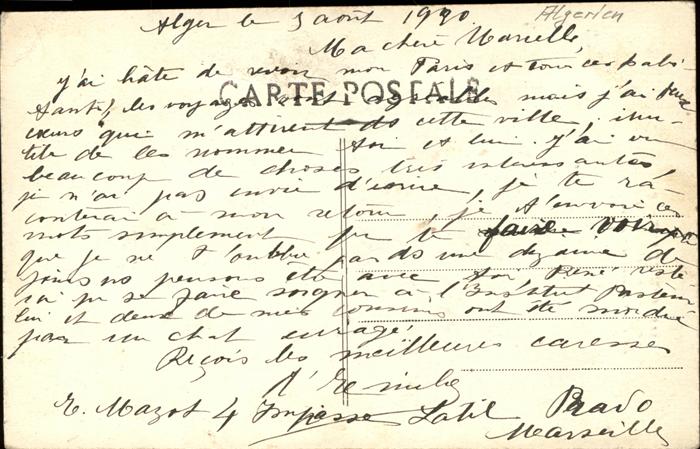 Alger le 5 août 1920.
Algerien
Ma chère Marcelle,
j'ai hâte de revoir mon Paris et tous ces
CARTE POSTALE
les voyages sont agréables mais j'ai deux
cœurs qui m'attirent ds cette ville. inu-
tile de les nommer toi et lui. j'ai vu
beaucoup de choses très intéressantes
je n'ai pas envie d'écrire, je te ra-
conterai à mon retour, je t'envoie ces
mots simplement pr te faire voir
que je ne t'oublie pas ds une dizaine de
jours ns pensons être avec toi René reste
ici pr se faire soigner à l'Institut Pasteur
lui et deux de mes cousins ont été mordus
par un chat enragé.
Reçois les meilleures caresses
d'Emilie
E. Mazot 4 Impasse Latil Prado
Marseille